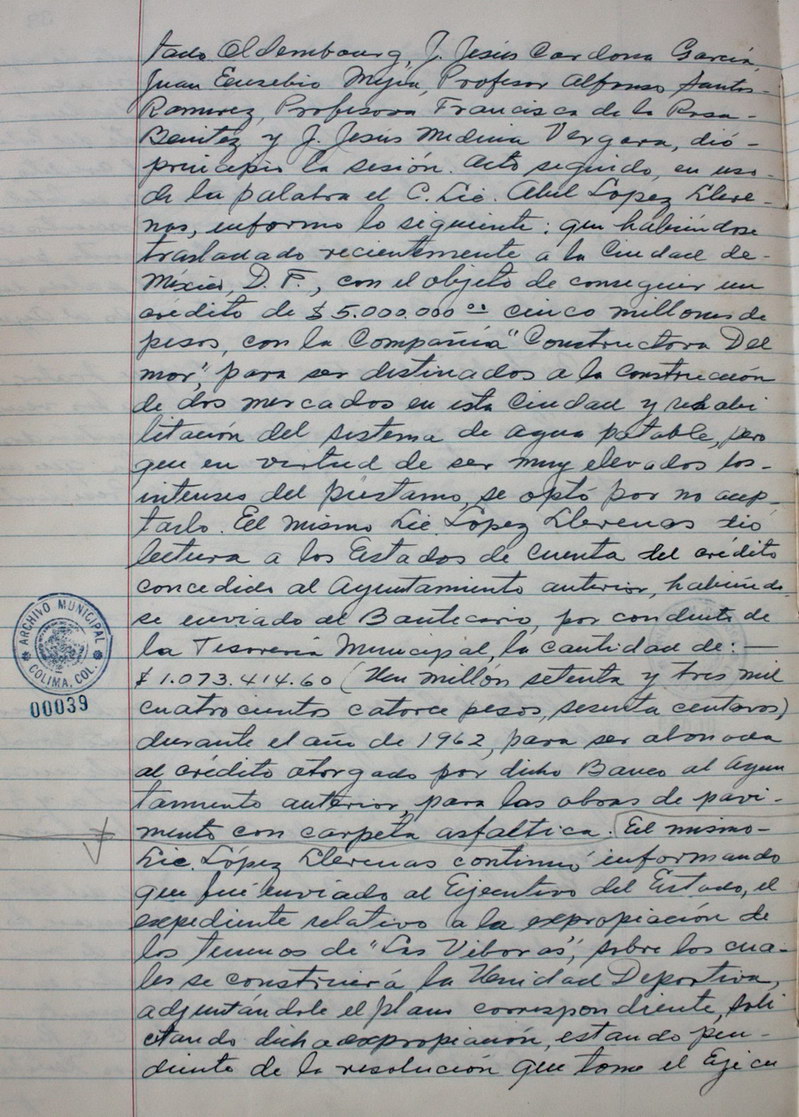 tado Oldembourg, J. Jesús Cardona García,
Juan Eusebio Mejía, Profesor Alfonso Santos-
Ramirez, Profesora Francisca de la Rosa-
Benitez y J. Jesús Medina Vergara, dió-
principio la sesión. Acto seguido, en uso-
de la palabra el C. Lic. Abel Lopez Llere-
nas, informo lo siguiente: que habiendose
trasladado recientemente a la Ciudad de-
México, D. F., con el objeto de conseguir un
crédito de $5.000,000 00 cinco millones de
pesos, con la Compañía "Constructora Del
mor", para ser distinados a la construcción
de dos mercados en esta Ciudad y rehabi
litación del sistema de agua potable, pero
que en virtud de ser muy elevados los-
intereses del préstamo, se optó por no acep-
tarlo. El mismo Lic. López Llerenas dió
lectura a los Estados de Cuenta del crédito
concedido al Ayuntamiento anterior, habiendo
se enviado al Bantecario, por conducto de
la Tesorería Municipal, la cantidad de: —
$1.073.414.60 (Un millón setenta y tres mil
cuatrocientos catorce pesos, sesenta centavos)
durante el año de 1962, para ser abonada
al crédito otorgado por dicho Banco al Ayun
tamiento anterior, para las obras de pavi-
mento con carpeta asfaltica. El mismo-
Lic. López Llerenas continuó informando
que fué enviado al Ejecutivo del Estado, el
expediente relativo a la expropiación de
los terrenos de "Las Víboras", sobre los cua-
les se construirá la Unidad Deportiva,
adjuntándole el plano correspondiente, soli
citando dicha expropiación, estando pen-
diente de la resolución que tome el Ejecu
ARCHIVO MUNICIPAL
COLIMA, COL.
00039